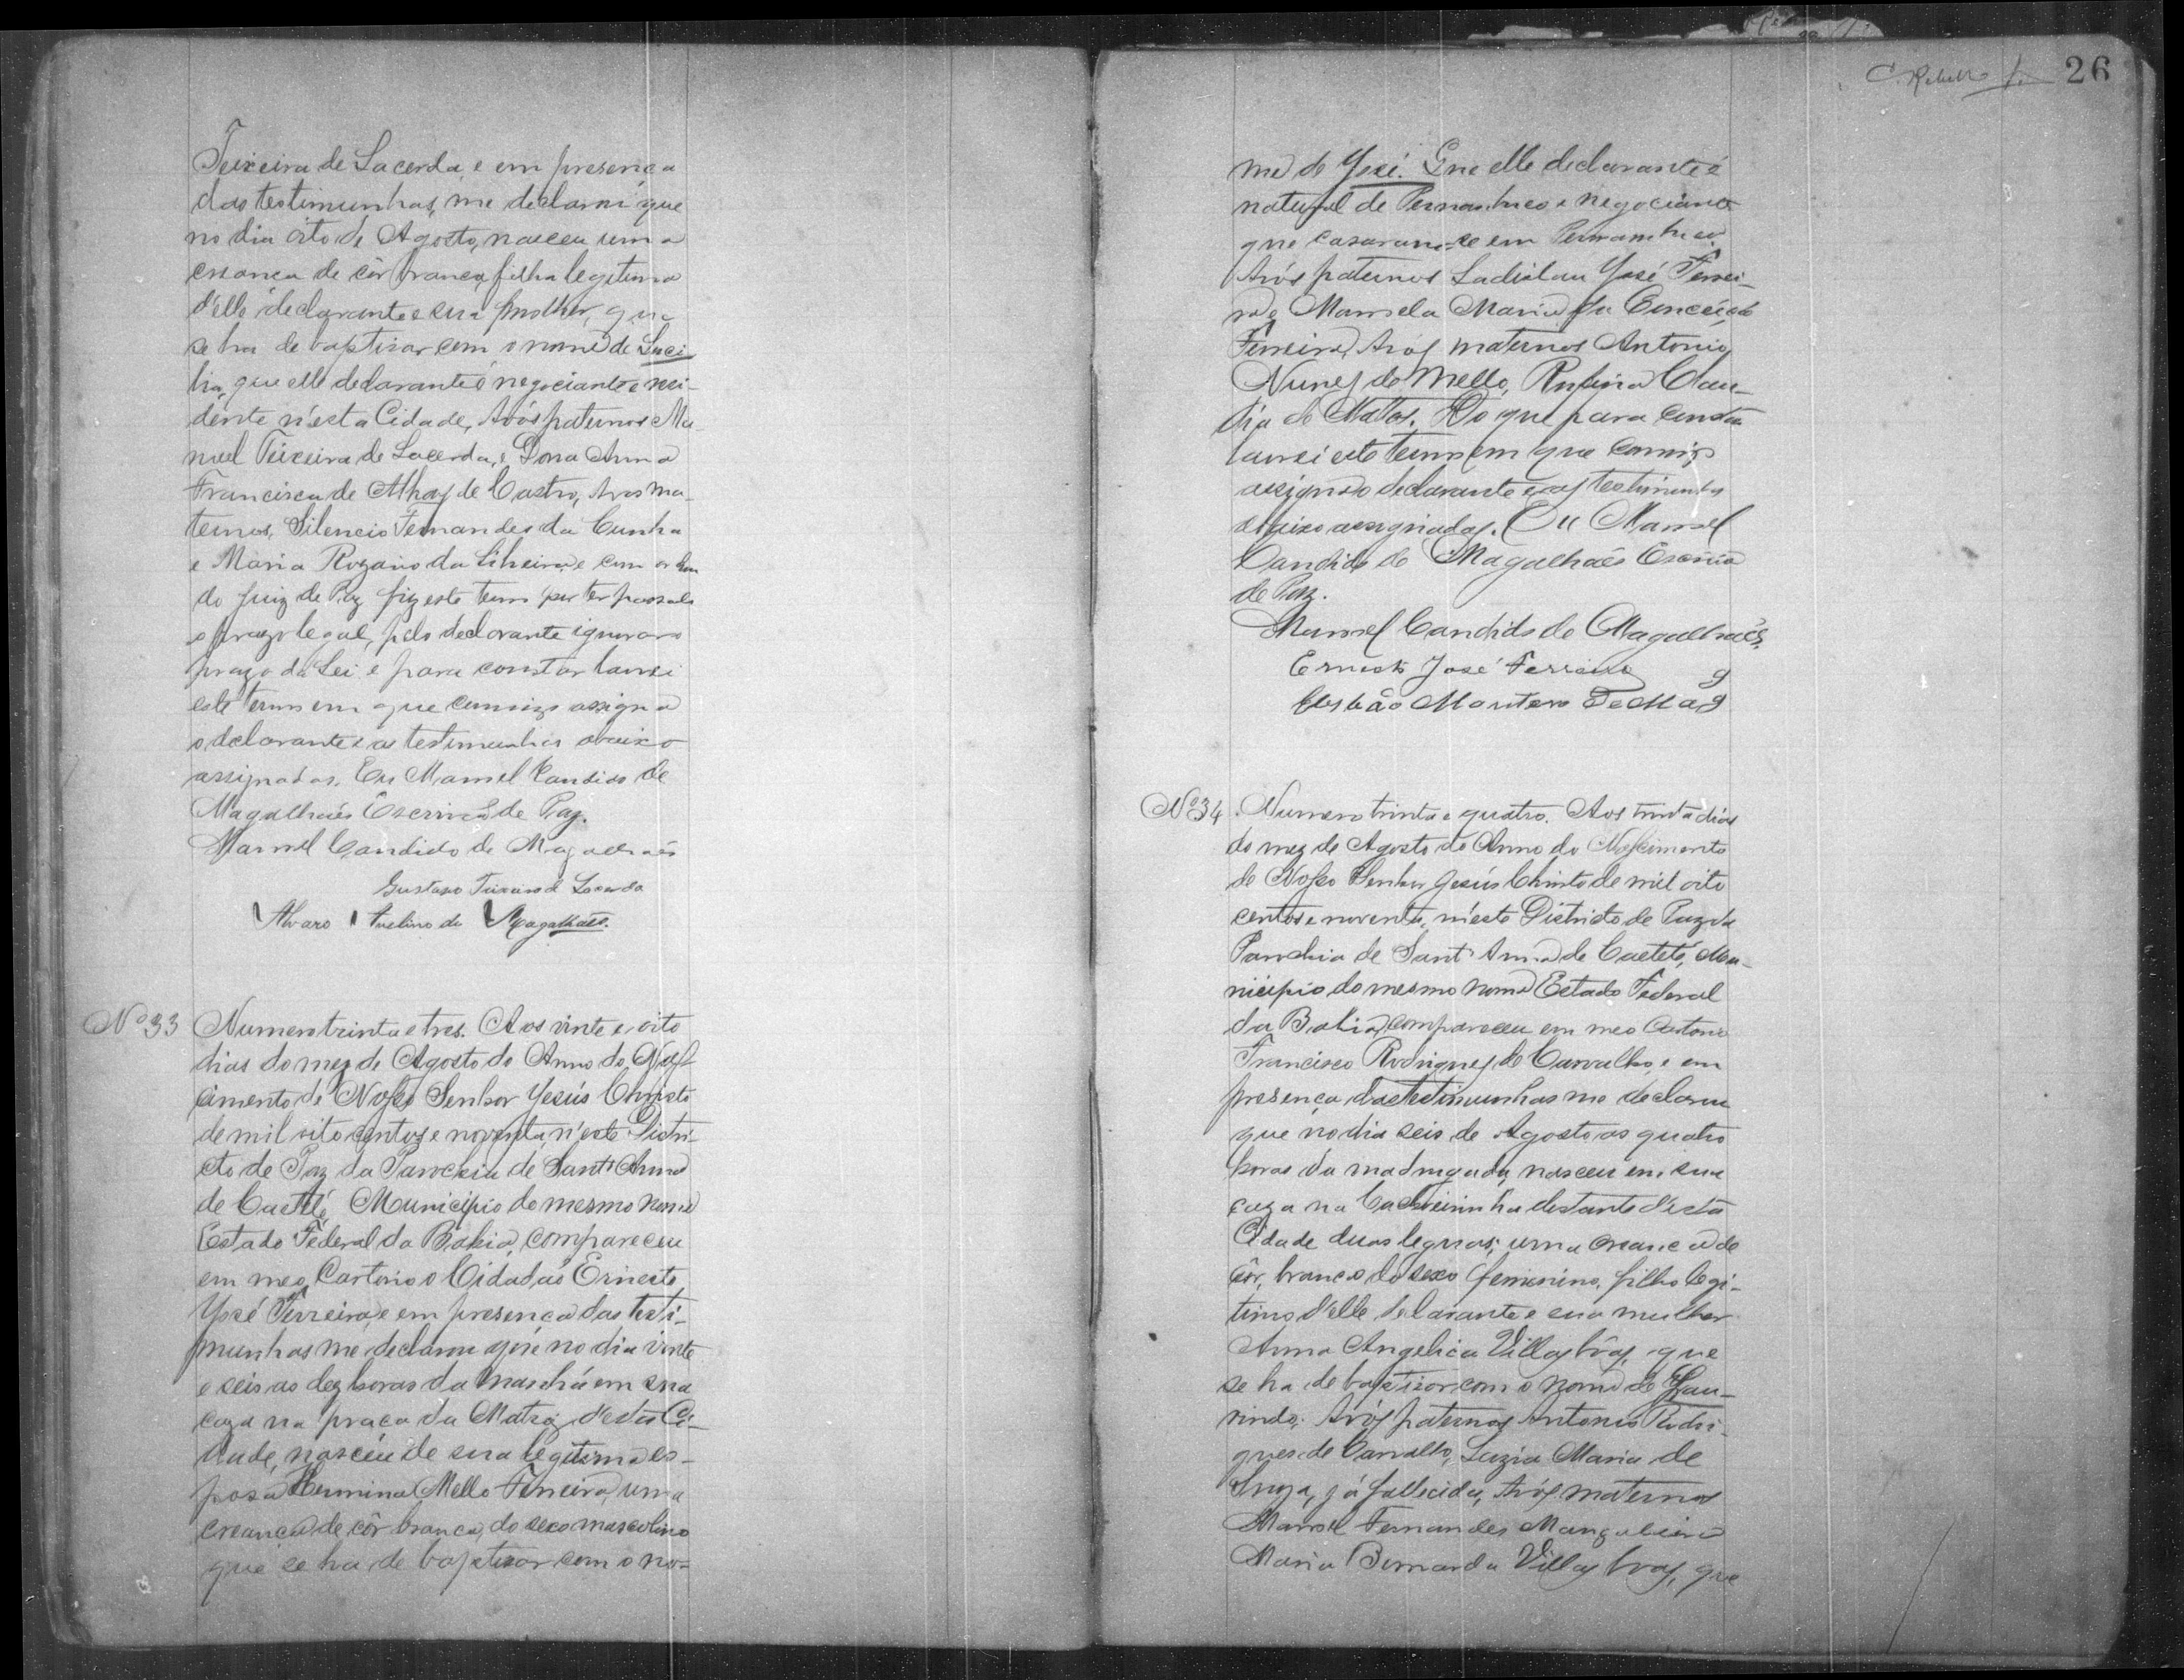 Teixeira de Lacerda, e em presença
das testimunhas, me declarou que
no dia oito de Agosto, nasceu uma
creança de côr branca, filha legitima
d'elle declarante e sua mulher, que
se ha de baptisar com o nome de Luci
lia, que elle declarante é negociante e resi-
dente n'esta Cidade, Avós paternos Ma-
nuel Teixeira de Lacerda, e Dona Anna
Francisca de de Castro, Avos ma-
ternos, Silencio Fernandes da Cunha
e Maria Rozario da e com ordem
do Juiz de Paz fiz este termo por ter passado
o prazo legal, pelo declarante ignorar o
prazo da Lei e para constar lavrei
este termo em que commigo assigna
o declarante e as testimunhas abaixo
assignadas. Eu Manoel Candido de
Magalhães Escrivão de Paz.
Manoel Candido de Magalhães
Gustavo Teixeira de Lacerda
Alvaro Avelino de Magalhães.
Nº 33 Numero trinta e tres. Aos vinte e oito
dias do mez de Agosto do Anno do Nas-
cimento de Nosso Senhor Yesús Christo
de mil oito centos e noventa, n'este Distri-
cto de Paz da Parochia de Sant'Anna
de Caetité, Municipio do mesmo nome
Estado Federal da Bahia, compareceu
em meo Cartorio o Cidadão Ernesto
Yosé Ferreira, e em presença das testi-
munhas me declarou que no dia vinte
e seis as dez horas da manhã em sua
caza na praça da Matriz d'esta Ci-
dade, nasceu de sua legitima es-
posa Hermina Mello Ferreira, uma
creança de côr branca, do sexo mascolino
que se ha de baptisar com o no-
C. Rebello f. 26
me de Yosé. Que elle declarante é
natural de Pernambuco e negociante
que casaram-se em Pernambuco.
Avós paternos Ladislau Yosé Ferrei-
ra e Manoela Maria da Conceição
Ferreira, Avós maternos Antonio
Nunes de Mello, Rufina Clau-
dia de Mattos. Do que para constar
lavrei este termo em que comigo
assigna o declarante e as testimunhas
abaixo assignadas. Eu Manoel
Candido de Magalhães Escrivão
de Paz.
Manoel Candido de Magalhães.
Ernesto José Ferreira
Nº 34 Numero trinta e quatro. Aos trinta dias
do mez de Agosto do Anno do Nascimento
de Nosso Senhor Jesús Christo de mil oito
centos e noventa, n'este Districto de Paz da
Parochia de Sant'Anna de Caeteté, Mu-
nicipio do mesmo nome Estado Federal
da Bahia, compareceu em meo Cartorio
Francisco Rodrigues de Carvalho, e em
presença das testimunhas me declarou
que no dia seis de Agosto as quatro
horas da madrugada, nasceu em sua
caza na Cachoeirinha destante d'esta
Cidade duas leguas; uma creança de
côr branca do sexo femenino, filho legi-
timo d'elle declarante e sua mulher
Anna Angelica Villasbôas, que
se ha de baptisar com o nome de Lau-
rindo. Avós paternos Antonio Rodri-
gues de Carvalho, Luzia Maria de
já fallecida, Avós maternos
Manoel Fernandes Mangabeira
Maria Bernarda Villas boas, que